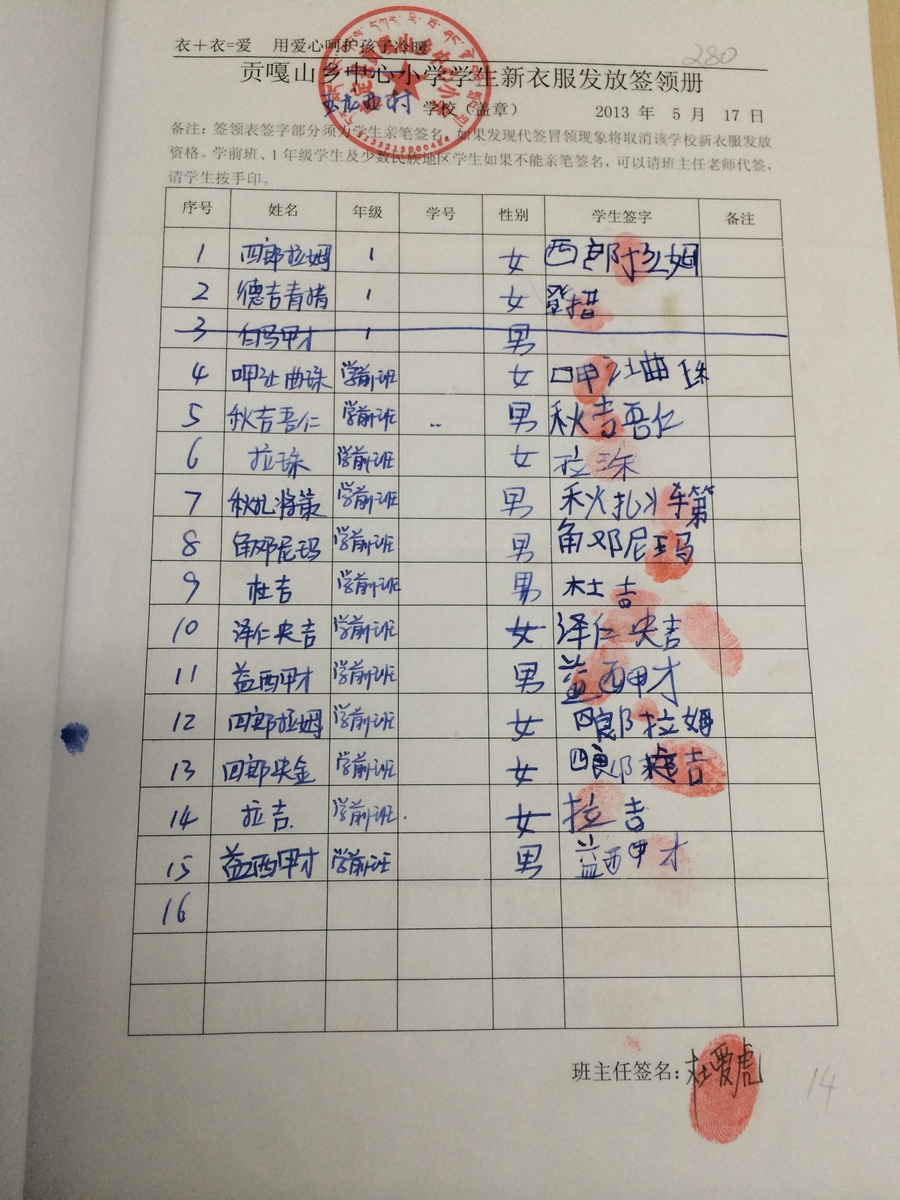 衣+衣=爱 用爱心呵护孩子冷暖
280
贡嘎山乡中心小学学生新衣服发放签领册
玉龙西村 学校（盖章） 2013 年 5 月 17 日
备注：签领表签字部分须为学生亲笔签名，如果发现代签冒领现象将取消该学校新衣服发放
资格。学前班、1年级学生及少数民族地区学生如果不能亲笔签名，可以请班主任老师代签，
请学生按手印。
序号 姓名 年级 学号 性别 学生签字 备注
1 四郎拉姆 1 女 西郎拉姆
2 德吉青措 1 女
3 白马甲才 1 男
4 呷让曲珠 学前班 女 呷让曲珠
5 秋吉吾仁 学前班 男 秋吉吾仁
6 拉珠 学前班 女 拉珠
7 秋扎将策 学前班 男 秋扎
8 角邓尼玛 学前班 男 角邓尼玛
9 杜吉 学前班 男 杜吉
10 泽仁央吉 学前班 女 泽仁央吉
11 益西甲才 学前班 男 益西甲才
12 四郎拉姆 学前班 女 四郎拉姆
13 四郎央金 学前班 女 四郎 吉
14 拉吉 学前班 女 拉吉
15 益西甲才 学前班 男 益西甲才
16
班主任签名：杜爱虎
14